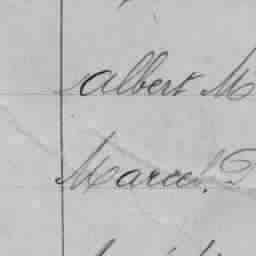 Albert M
Marcel.